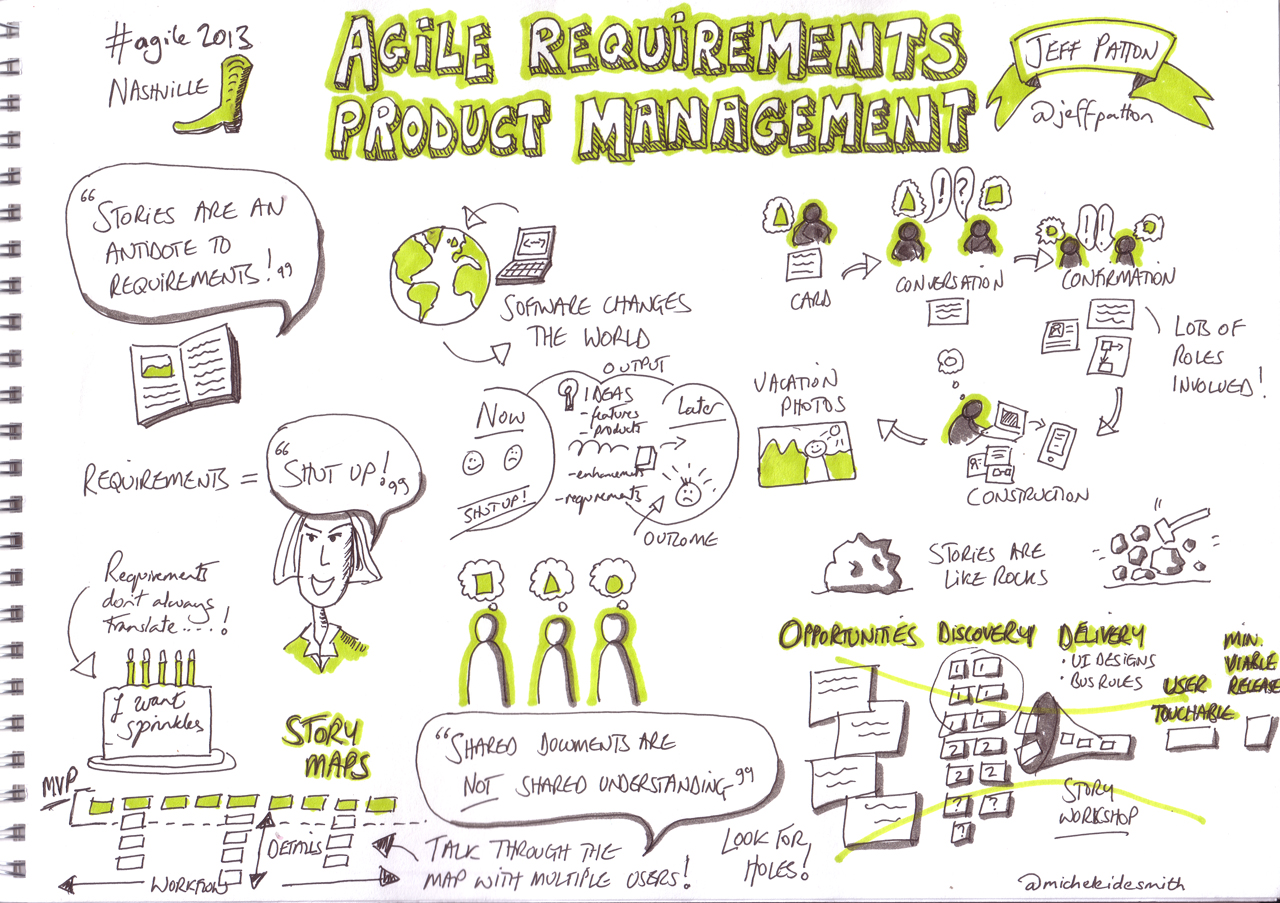 #agile 2013
NASHVILLE
AGILE REQUIREMENTS
PRODUCT MANAGEMENT
JEFF PATTON
@jeffpatton
"STORIES ARE AN
ANTIDOTE TO
REQUIREMENTS!"
SOFTWARE CHANGES
THE WORLD
CARD
! ?
CONVERSATION
! !
CONFIRMATION
LOTS OF
ROLES
INVOLVED!
CONSTRUCTION
VACATION
PHOTOS
OUTPUT
NOW
SHUT UP!
IDEAS
- features
- products
- enhancements
- requirements
Later
OUTCOME
REQUIREMENTS =
"SHUT UP!"
Requirements
don't always
translate....!
I want
sprinkles
STORIES ARE
LIKE ROCKS
"SHARED DOCUMENTS ARE
NOT SHARED UNDERSTANDING"
STORY
MAPS
MVP
DETAILS
WORKFLOW
TALK THROUGH THE
MAP WITH MULTIPLE USERS!
LOOK FOR
HOLES!
OPPORTUNITIES
DISCOVERY
1 1
1 1
1 1
2 2
2 2
? ?
?
DELIVERY
• UI DESIGNS
• BUS RULES
USER
TOUCHABLE
MIN.
VIABLE
RELEASE
STORY
WORKSHOP
@micheleidesmith